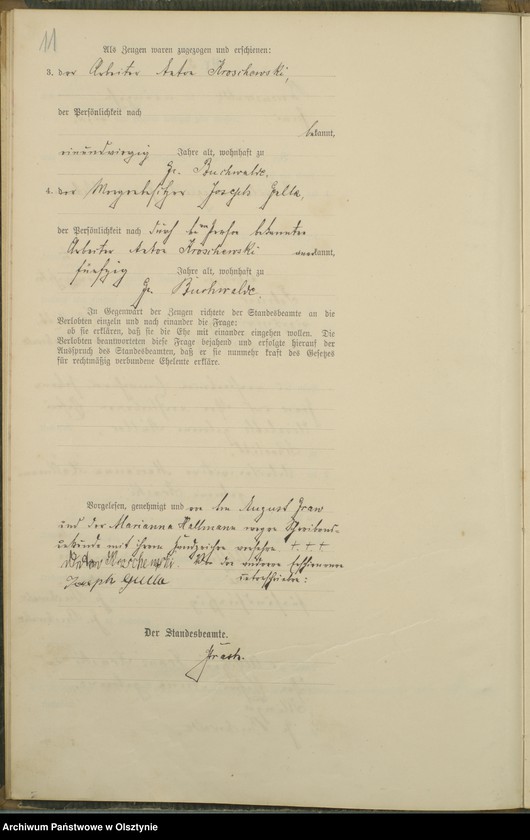 11
Als Zeugen waren zugezogen und erschienen:
3. der Arbeiter Anton Kroschewski,
der Persönlichkeit nach
bekannt,
einundvierzig Jahre alt, wohnhaft zu
Gr. Buchwalde,
4. der Joseph
der Persönlichkeit nach durch bekannten
Arbeiter Anton Kroschewski anerkannt,
fünfzig Jahre alt, wohnhaft zu
Gr. Buchwalde,
In Gegenwart der Zeugen richtete der Standesbeamte an die
Verlobten einzeln und nach einander die Frage:
ob sie erklären, daß sie die Ehe mit einander eingehen wollen. Die
Verlobten beantworteten diese Frage bejahend und erfolgte hierauf der
Ausspruch des Standesbeamten, daß er sie nunmehr kraft des Gesetzes
für rechtmäßig verbundene Eheleute erkläre.
Vorgelesen, genehmigt und von dem August
und der Marianna Hallmann wegen Schreibens-
unkunde mit ihrem Handzeichen versehen. + + +
Anton Von den anderen Erschienenen
Joseph unterschrieben:
Der Standesbeamte.
Archiwum Państwowe w Olsztynie